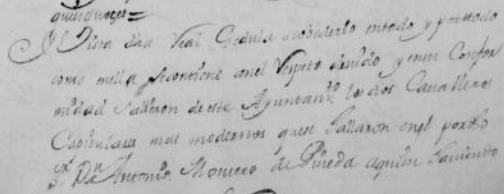 y Vista dha Real Zedula se obedezio entodo y portodo
como en ella secontiene conel Respeto devido y en su Confor
midad salieron de este Ayuntamto los dos Cavalleros
Capitulares mas modernos que se hallaron en el por
Dn Antonio Montero de Pineda aquien haviendo